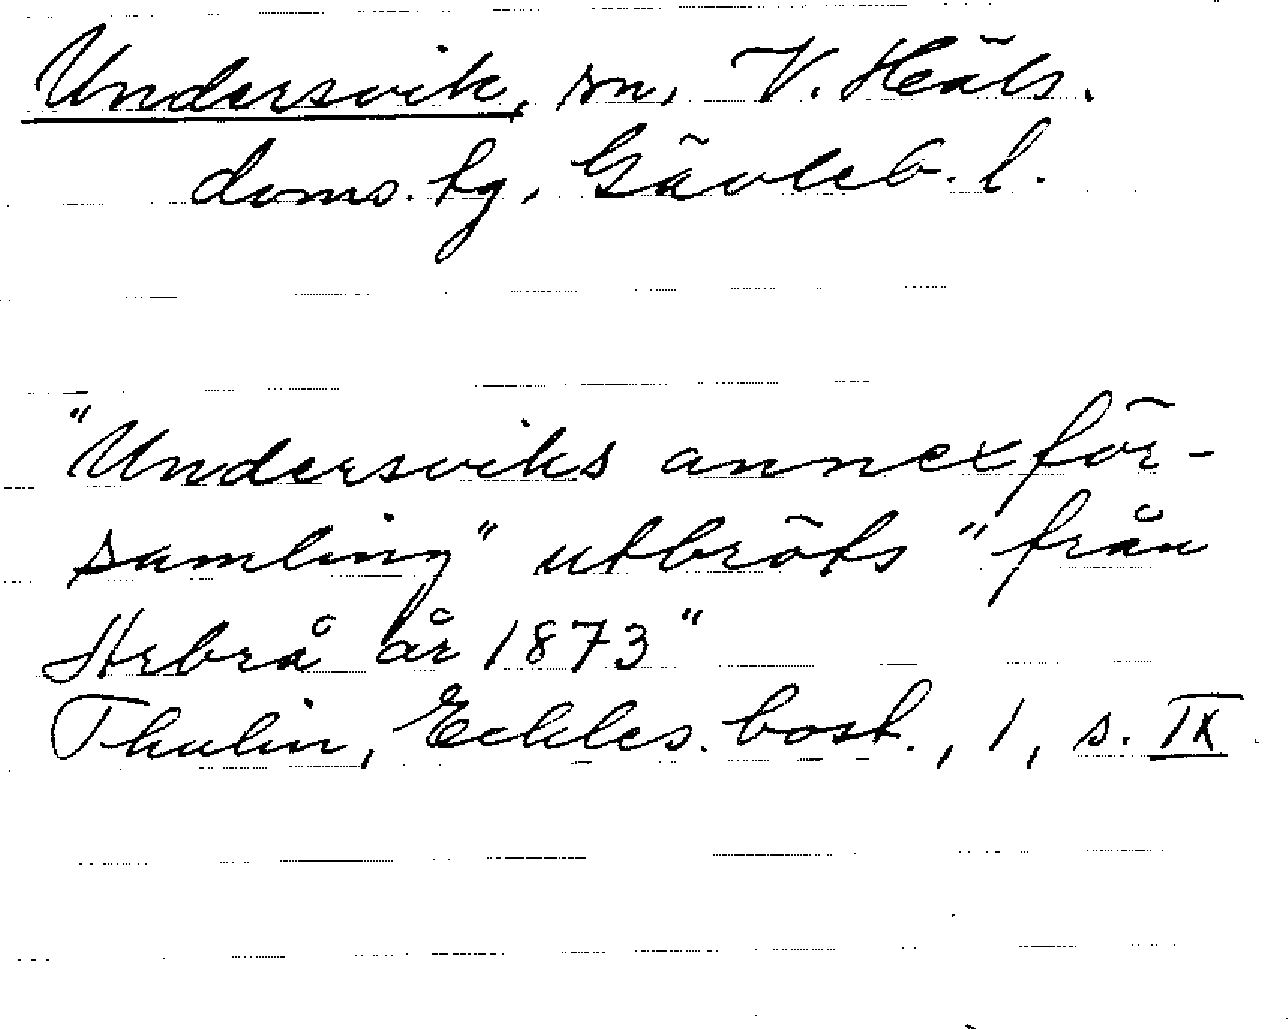 Undersvik, sn, V. Häls.
doms. hg, Gävleb. l.
"Undersviks annexför-
samling" utbröts "från
Arbrå år 1873"
Thulin, Eckles. bost., 1, s. IX